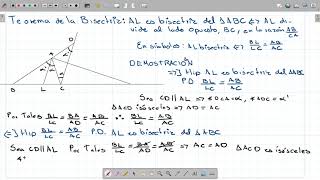 Teorema de la Bisectriz: AL es bisectriz del ΔABC ⇔ AL di-
vide al lado opuesto, BC, en la razón AB/CA
En símbolo: AL bisectriz ⇔ BL/LC = AB/AC
DEMOSTRACIÓN
⇒) Hip AL es bisectriz del ΔABC
P.D. BL/LC = AB/AC
D
A
B L C
Sea CD//AL ⇒
ΔACD es isósceles ⇒ AD = AC
Por Tales BL/LC = BA/AD = AB/AC ∴ BL/LC = AB/AC
⇐) Hip BL/LC = AB/AC P.D. AL es bisectriz del ΔABC
Sea CD//AL Por Tales BL/LC = BA/AD = AB/AC ⇒ AC = AD ΔACD es isósceles